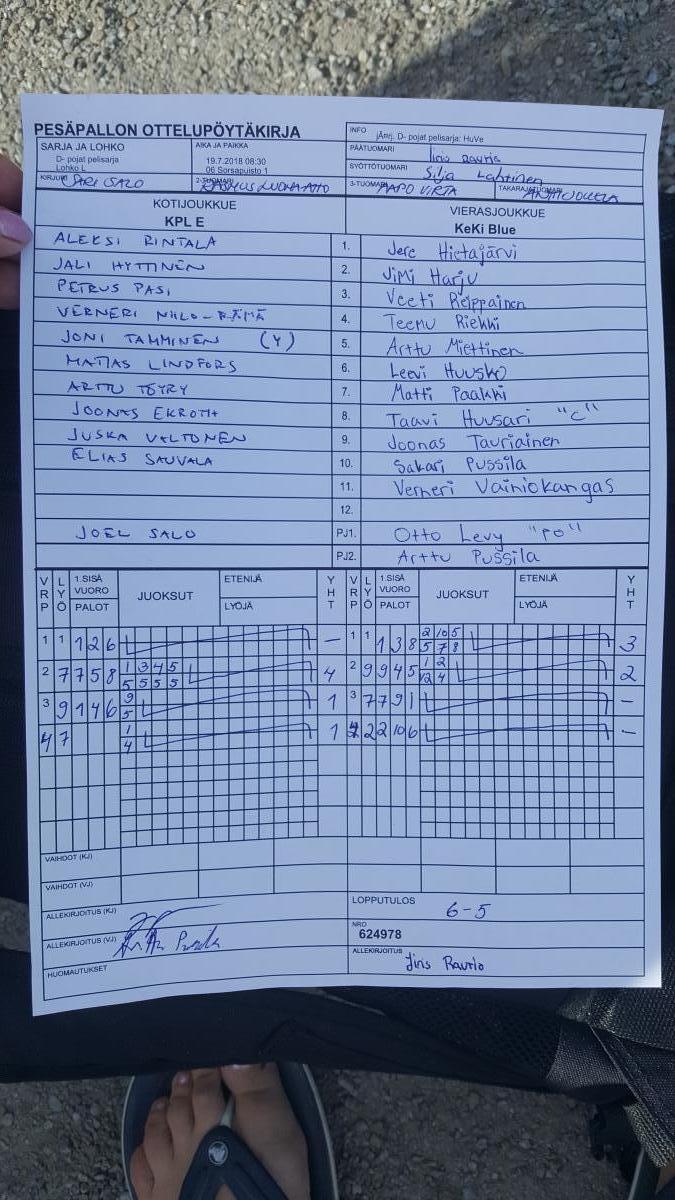 PESÄPALLON OTTELUPÖYTÄKIRJA
INFO jÄnrj. D- pojat pelisarja: HuVe
SARJA JA LOHKO
D- pojat pelisarja
Lohko L
AIKA JA PAIKKA
19.7.2018 08:30
06 Sorsapuisto 1
PÄÄTUOMARI Iiris
SYÖTTÖTUOMARI Silja Lahtinen
KIRJURI SARI SALO
2-TUOMARI RASMUS
3-TUOMARI AAPO VIRTA
TAKARAJATUOMARI
KOTIJOUKKUE
KPL E
VIERASJOUKKUE
KeKi Blue
ALEKSI RINTALA 1. Jere Hietajärvi
JALI HYTTINEN 2. JiMi Harju
PETRUS PASI 3. Veeti Reippainen
VERNERI NIILO-RÄMÄ 4. Teemu Riekki
JONI TAMMINEN (Y) 5. Arttu Miettinen
MATIAS LINDFORS 6. Leevi Huusko
ARTTU TÖYRY 7. Matti Paakki
JOONAS EKROTH 8. Taavi Huusari "C"
JUSKA VALTONEN 9. Joonas Tauriainen
ELIAS SAUVALA 10. Sakari Pussila
11. Verneri Vainiokangas
12.
JOEL SALO PJ1. Otto Levy "PO"
PJ2. Arttu Pussila
VRP LYÖ 1.SISÄ VUORO PALOT JUOKSUT ETENIJÄ LYÖJÄ YHT VRP LYÖ 1.SISÄ VUORO PALOT JUOKSUT ETENIJÄ LYÖJÄ YHT
1 1 1 2 6 – 1 1 1 3 8 2 10 5 3
5 7 8
2 7 7 5 8 1 3 4 5 4 2 9 9 4 5 1 2 2
5 5 5 5 12 4
3 9 1 4 6 9 1 3 7 7 9 1 –
5
4 7 1 1 4 2 2 10 6 –
4
VAIHDOT (KJ)
VAIHDOT (VJ)
ALLEKIRJOITUS (KJ)
LOPPUTULOS 6-5
ALLEKIRJOITUS (VJ)
NRO
624978
HUOMAUTUKSET
ALLEKIRJOITUS Iiris Rautio